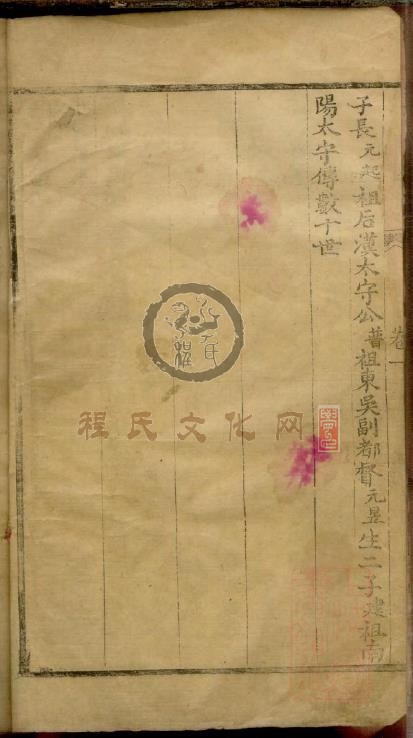 卷一
子長元起祖后漢太守公普祖東吳副都督元呈生二子建祖南
陽太守傳數十世
程氏文化网